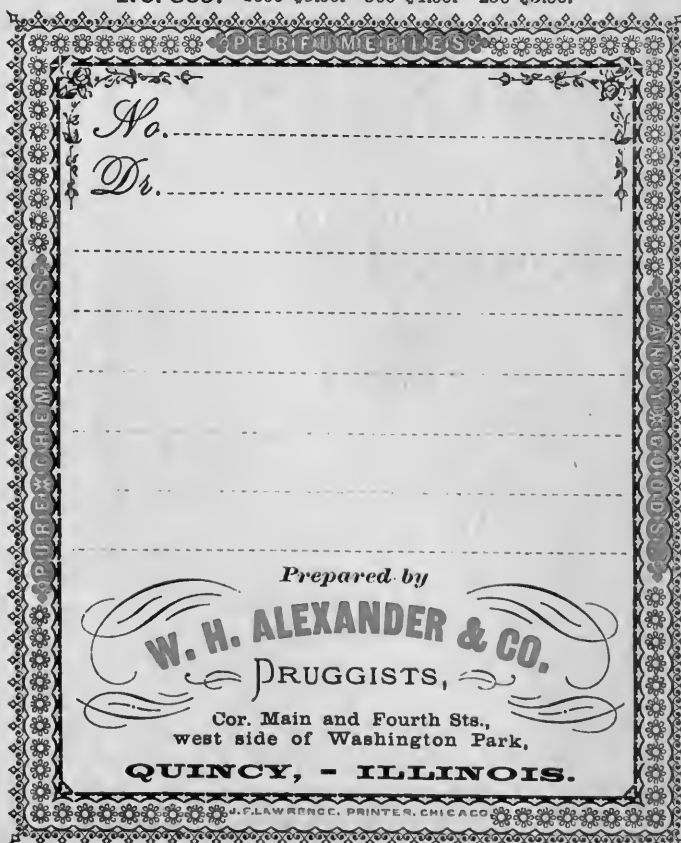 PERFUMERIES
PURE CHEMICALS
FANCY GOODS
No.
Dr.
Prepared by
W. H. ALEXANDER & CO.
DRUGGISTS,
Cor. Main and Fourth Sts.,
west side of Washington Park,
QUINCY, - ILLINOIS.
J.F.LAWRENCE, PRINTER, CHICAGO